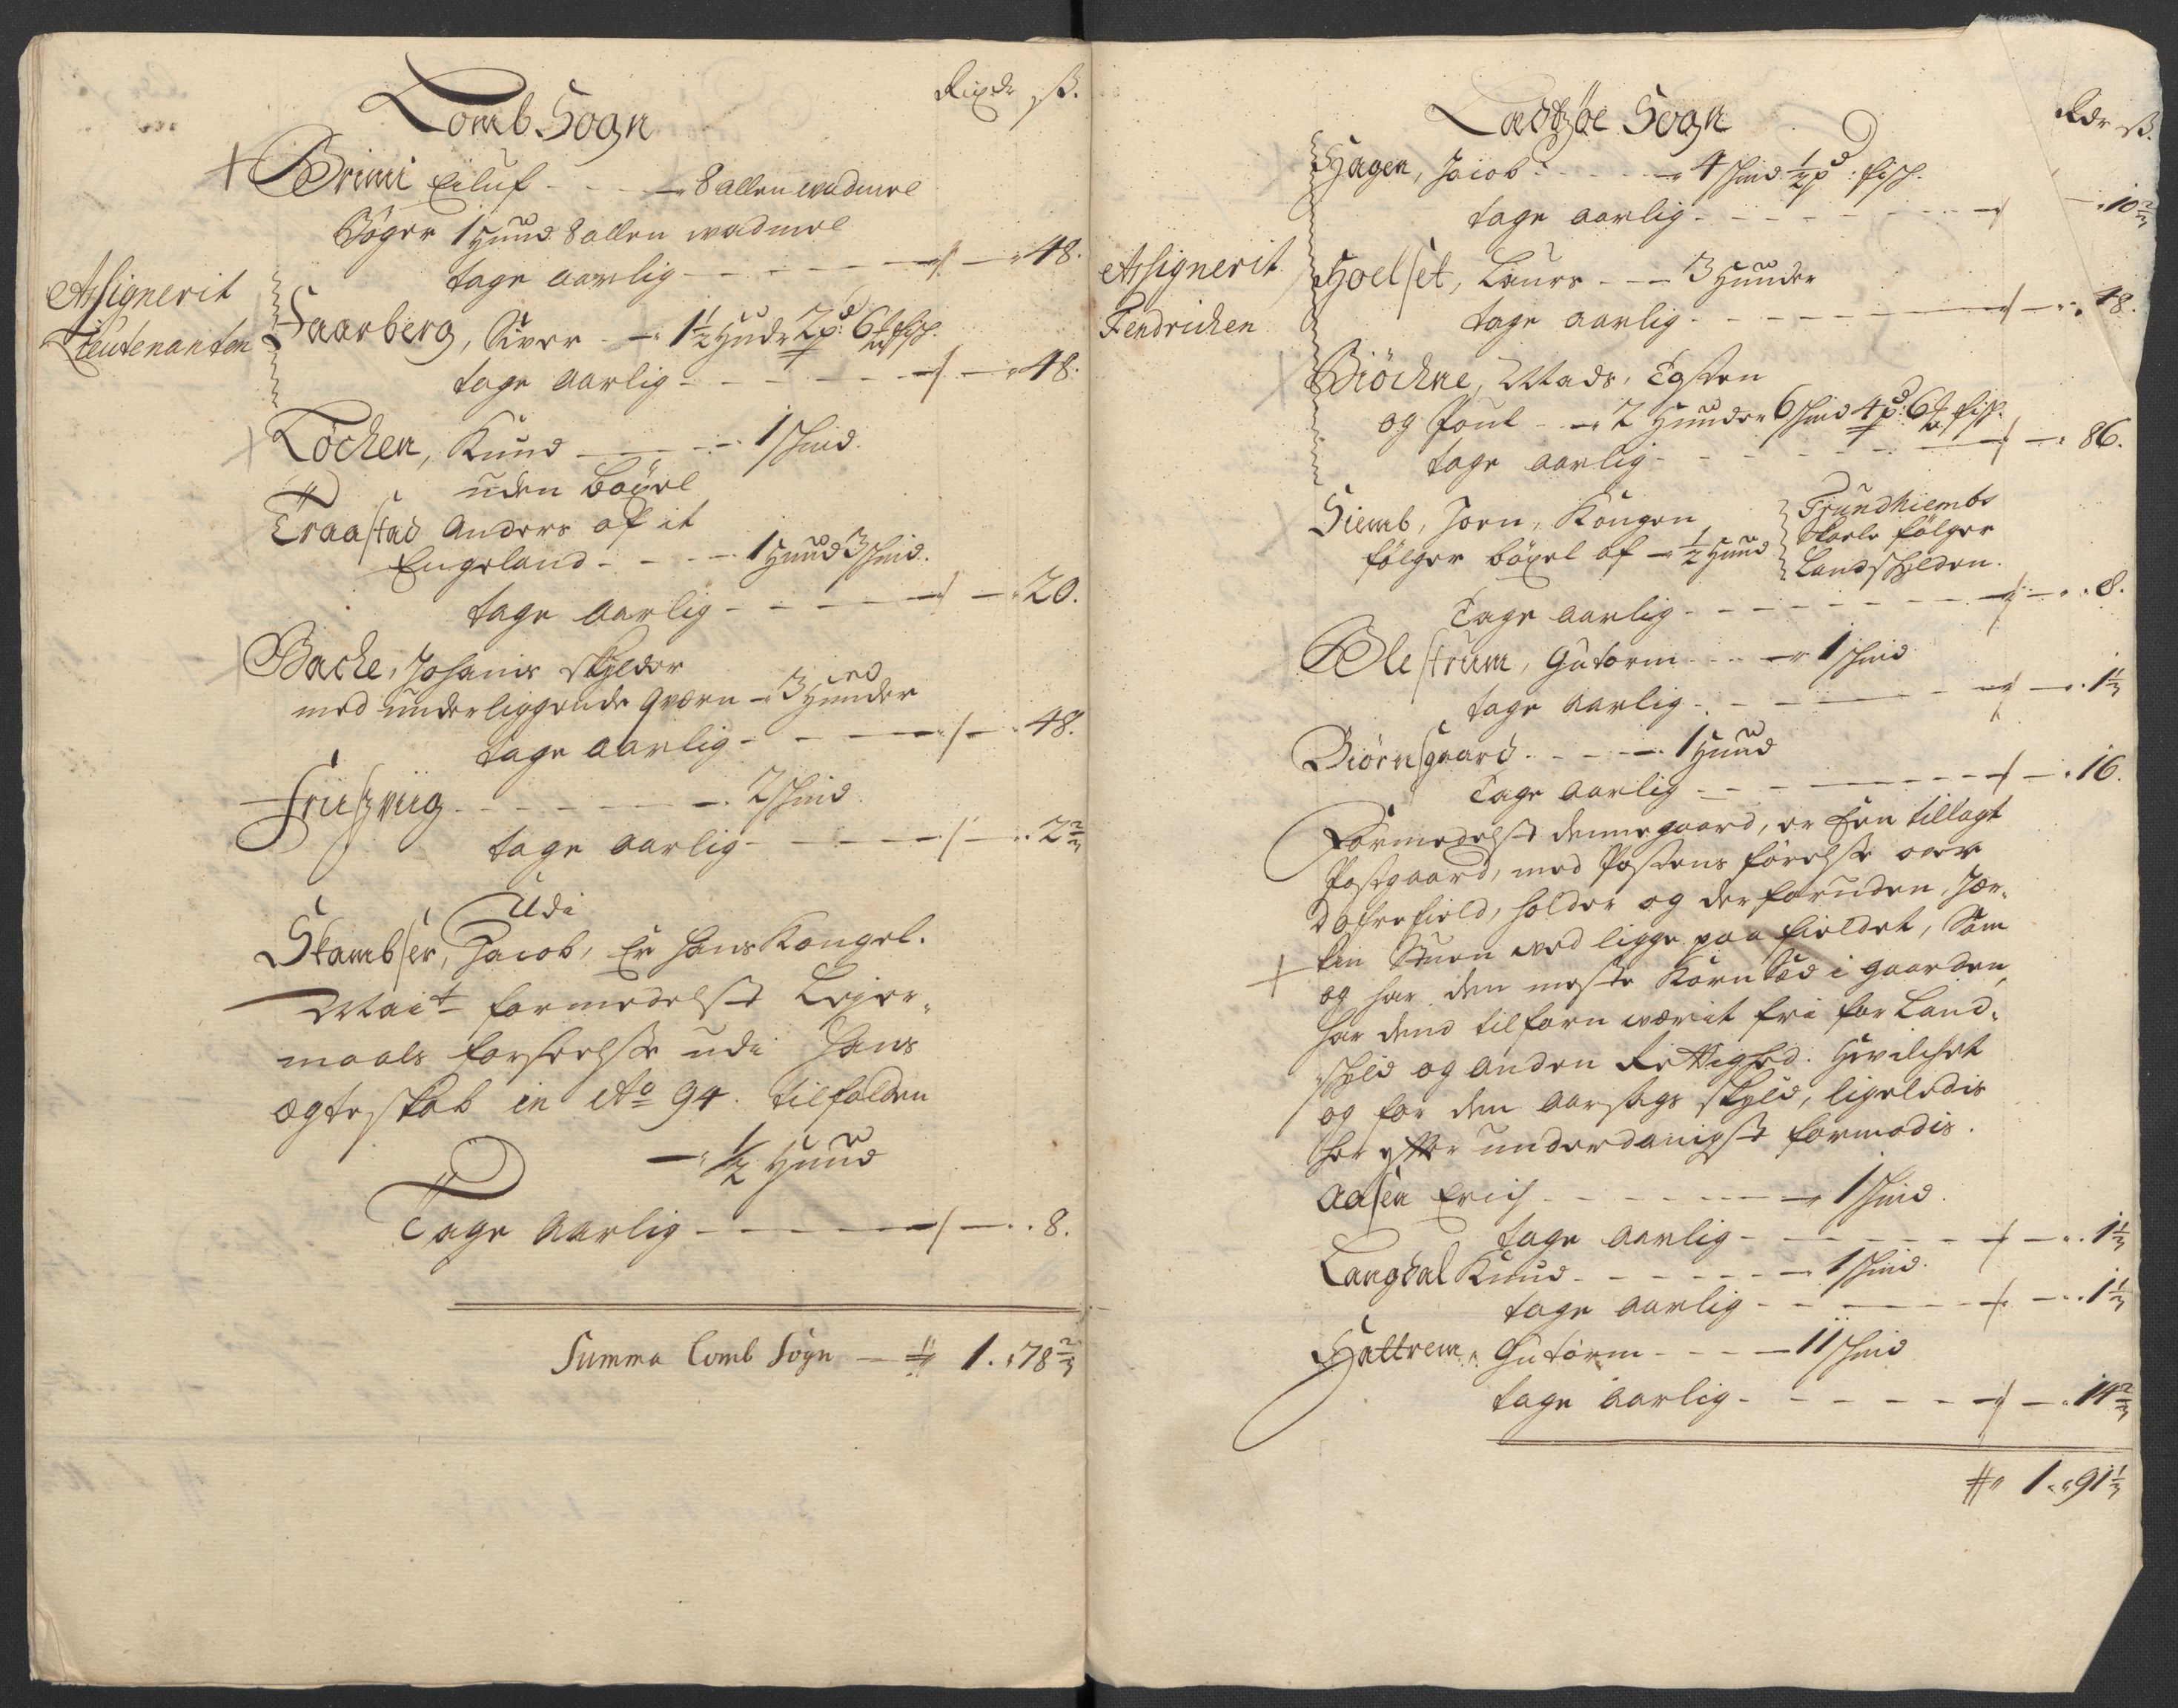 Lomb Sogn
Rixdr ß.
Brimi Eiluf - - - 8 allen wadmel
Böger 1 Hund 8 allen wadmel
tage aarlig - - - - 48.
Assignerit
Lieutenanten
Faarberg, Siver - 1½ Hude 2 pd: 6 fisch.
tage aarlig - - - - 48.
Löchen, Knud - - - 1 skind
uden Böxel
Traastad Anders af it
Engeland - - - 1 Hund 3 skind.
tage aarlig - - - - 20.
Bache, Johanis skylder
med underliggende Qværn - 3 Hunder
tage aarlig - - - - 48.
Friisviig - - - - 2 skind
tage aarlig - - - - 2⅔
Udi
Stambser, Jacob, Er Hans Kongel.
Mait formedelst Leyer-
maals forseelse udi Hans
ægteskab in Ao 94. tilfalden
- ½ Hund
Tage Aarlig - - - - 8.
Summa Lomb Sogn - 1. 78⅔
Ladsöe Sogn
Rdr ß.
Hagen, Jacob - - - 4 skind ½ pd: fisch.
tage aarlig - - - - 10⅔
Assignerit
Fendrichen
Hoelset, Laurs - - 3 Hunder
tage aarlig - - - - 48.
Biöchne, Mads, Eysten
og Poul - - 2 Hunder 6 skind 4 pd: 6 fisch.
tage aarlig - - - - 86.
Siemb, Joen, Kongen
följer böxel af - ½ Hund
Trundhiembs
Skoele fölger
Landskylden.
Tage aarlig - - - - 8.
Blestrum, Gutorm - - - 1 skind
tage aarlig - - - - 1⅓
Biörnsgaard - - - 1 Hund
Tage aarlig - - - - 16.
Formedelst denne gaard, er Een tillagt
Postgaard, med Postens förelse over
Dofrefield, holder og derforuden, Jer-
kin Stuen ved ligge paa fieldet, Som
og har den meste Korn Sæd i gaarden,
har dend tilforn værit fri for Land-
skyld og anden Rettighed. Hvilchet
og for den aarsags skyld, ligeledis
her effter underdanigst formodis.
Aasen Erich - - - - 1 skind.
tage aarlig - - - - 1⅓
Langdal Knud - - - - 1 skind.
tage aarlig - - - - 1⅓
Hattrem, Gutorm - - - 11 skind
tage aarlig - - - - 14⅔
1. 91⅓